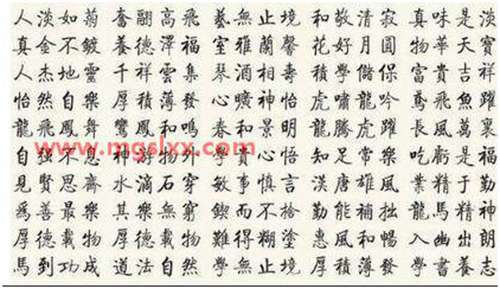 人淡如菊 奮翮高飛 藝無止境 和敬清寂 真味是淡
真金不鍍 養德澤福 室雅蘭馨 花好月圓 物華天寶
人杰地靈 千祥雲集 琴酒相壽 學儲保 富貴吉祥
怡然自樂 厚積薄發 心曠神怡 虎嘯龍吟 鳶飛魚躍
龍飛鳳舞 鸞鳳和鳴 春和景明 龍騰虎躍 長風萬裏
www.mgslxx.com
自强不息 神游物外 心悟 知足常樂 吃虧是福
見賢思齊 水滴石穿 敏事慎言 漢唐雄風 業精于勤
為善最樂 其樂無窮 鍥而不捨 勤能補拙 龍馬精神
厚德載物 厚德載物 難得糊塗 惠風和暢 入幽出朗
馬到功成 道法自然 學無止境 厚積薄發 學書養志